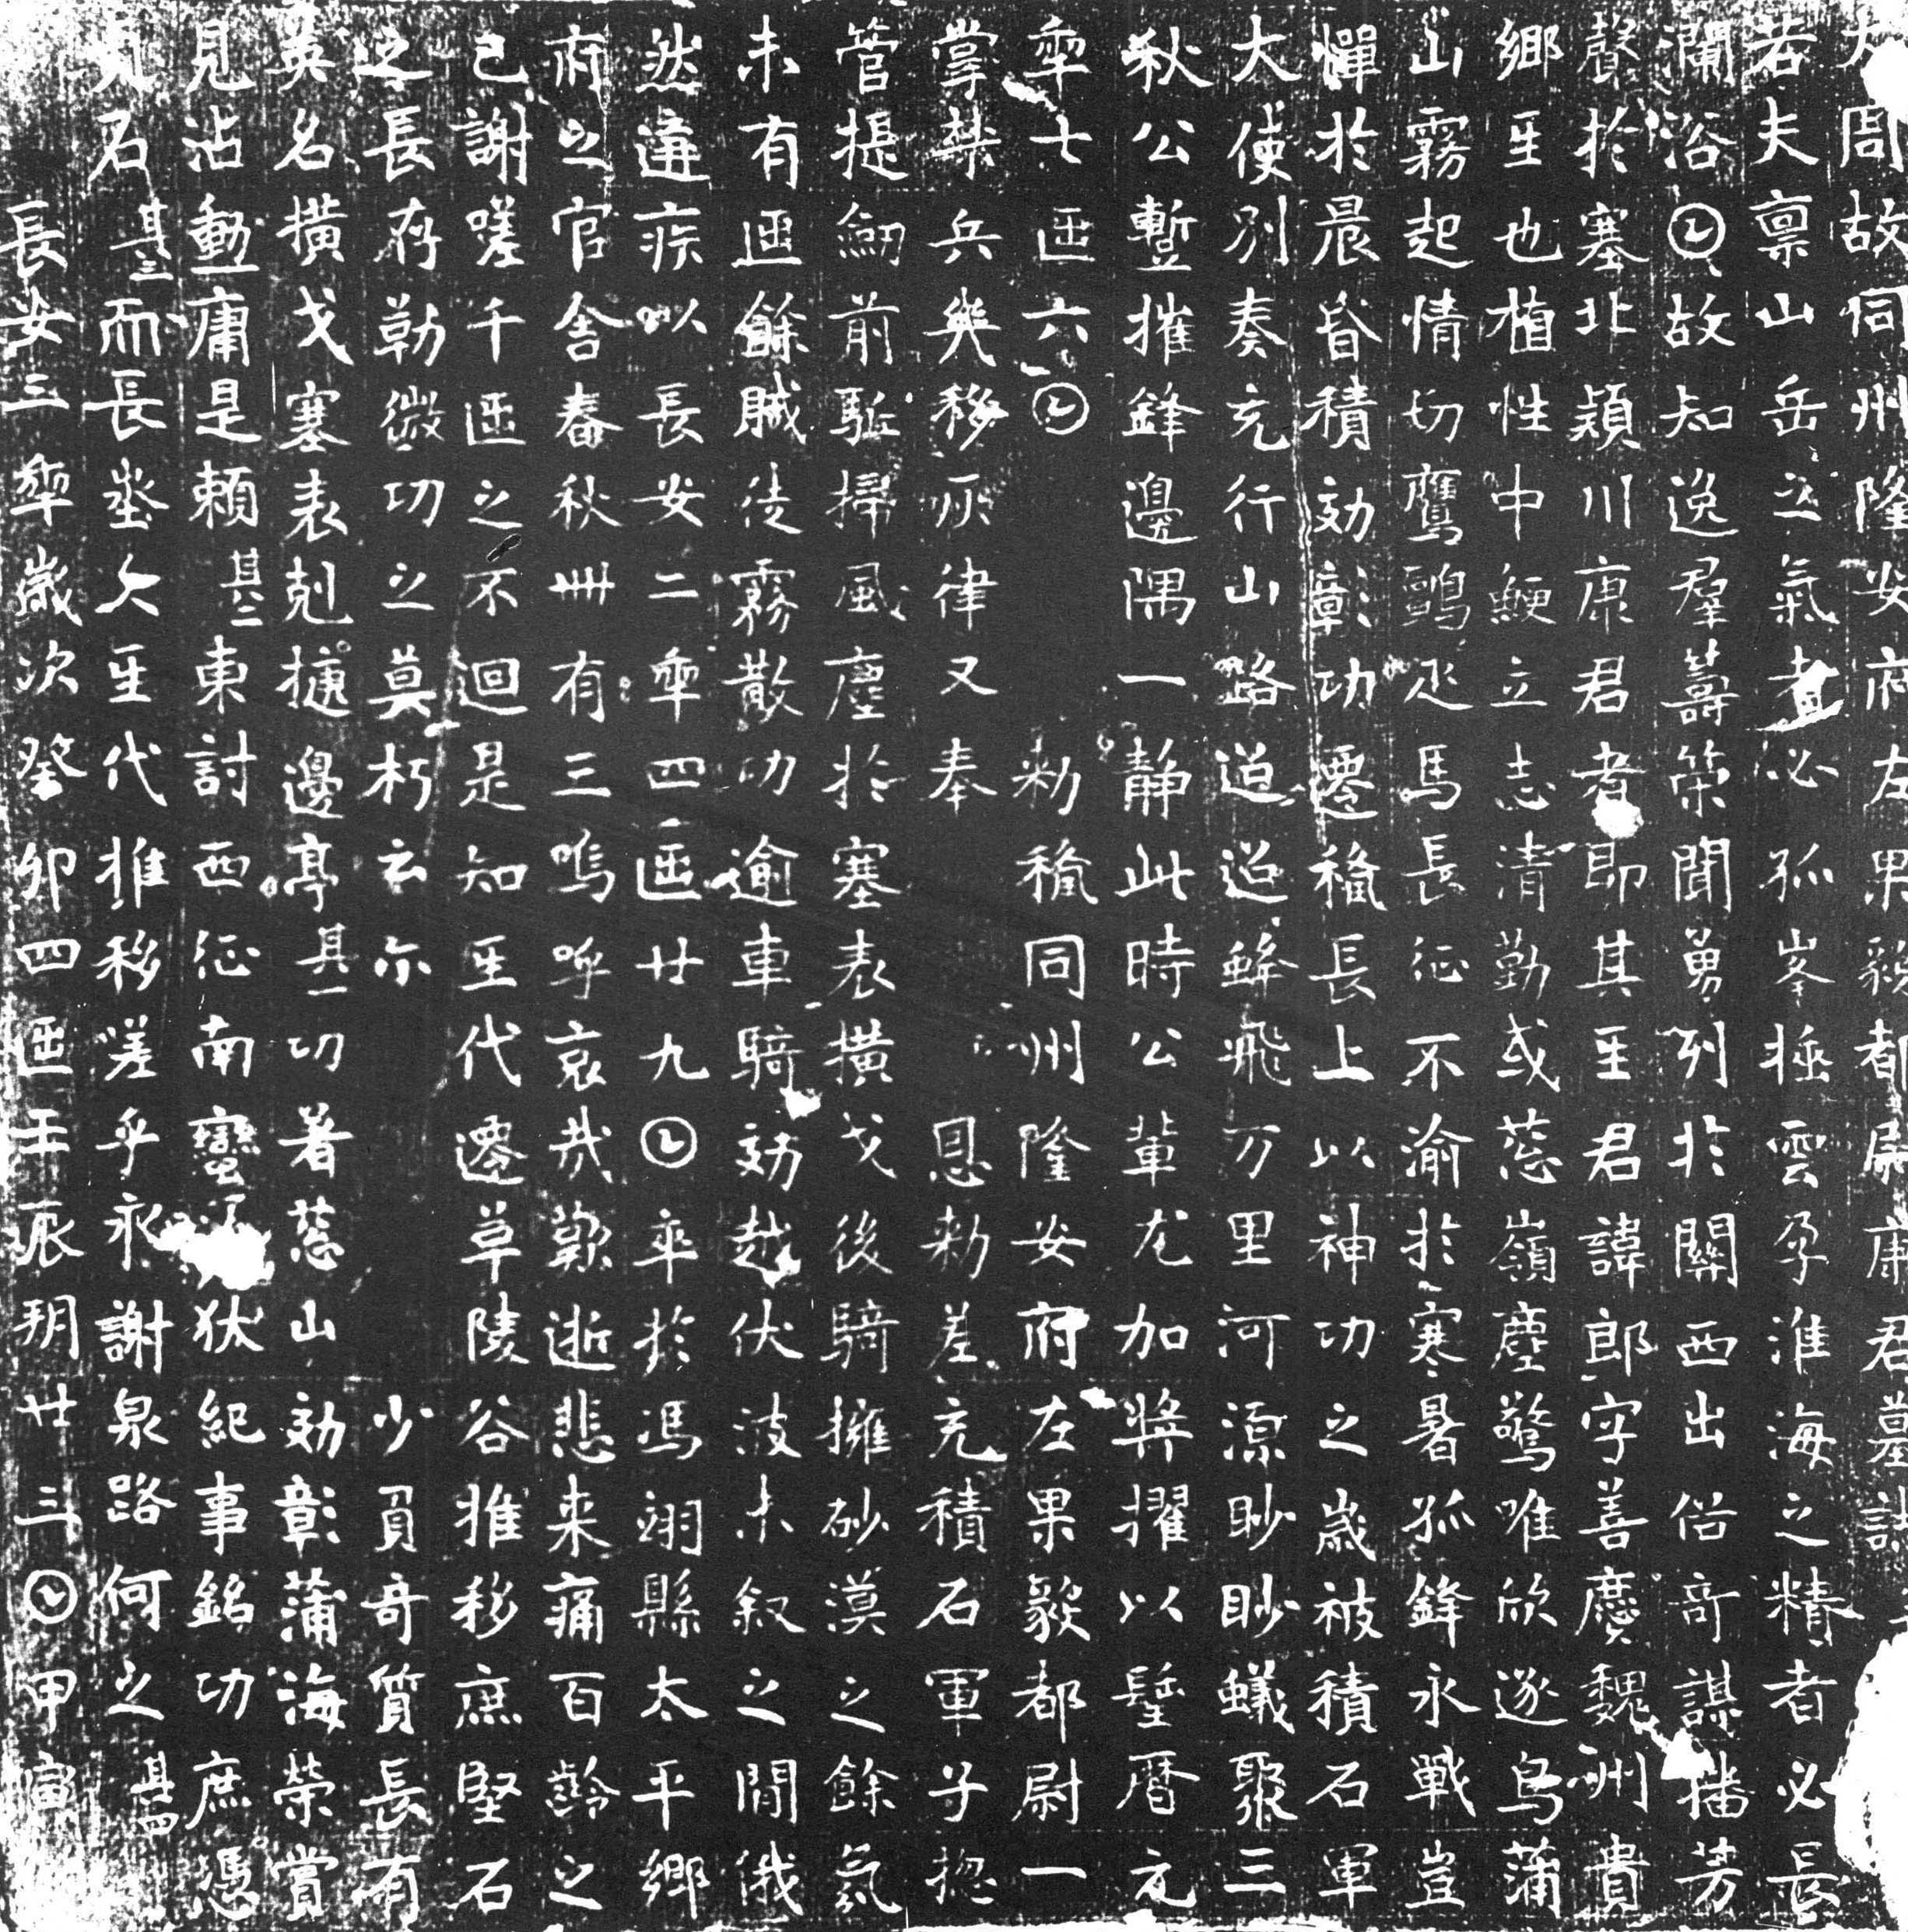 大周故同州隆安府左果毅都尉康君墓誌
若夫禀山岳之氣者必孤峯極雲孕淮海之精者必長
瀾浴𡆠故知逸羣籌策聞勇列於關西出俗奇謀播芳
聲於塞北潁川康君者即其𤯔君諱郎字善慶魏州貴
鄉𤯔也植性中鯁立志清勤或蔥嶺塵驚唯欣逐鳥蒲
山霧起情切鷹鸇疋馬長征不渝於寒暑孤鋒永戰豈
憚於晨昏積効彰功遷秩長上以神功之歲被積石軍
大使別奏充行山路迢迢蜂飛万里河源眇眇蟻聚三
秋公蹔摧鋒邊隅一静此時公輩尤加獎擢以聖曆元
𠡦七𠥱六𡆠 敕秩同州隆安府左果毅都尉一
掌禁兵幾移灰律又奉 恩敕差充積石軍子揔
管提劒前駈掃風塵於塞表橫戈後騎擁砂漠之餘氛
未有𠥱餘賊徒霧散功逾車騎効越伏波未叙之間俄
然遘疾以長安二𠡦四𠥱廿九𡆠卒於馮翊縣太平鄉
府之官舍春秋卌有三嗚呼哀哉歎逝悲来痛百齡之
已謝嗟千𠥱之不迴是知𤯔代遷革陵谷推移庶堅石
之長存勒微功之莫朽云尔 少負奇質長有
英名橫戈塞表剋摅邊亭其一功著蔥山効彰蒲海榮賞
見沾動庸是賴其二東討西征南蠻狄紀事銘功庶憑
石其三而長埊久𤯔代推移嗟乎永謝泉路何之其四
長安三𠡦歲次癸卯四𠥱壬辰朔廿三𡆠甲寅